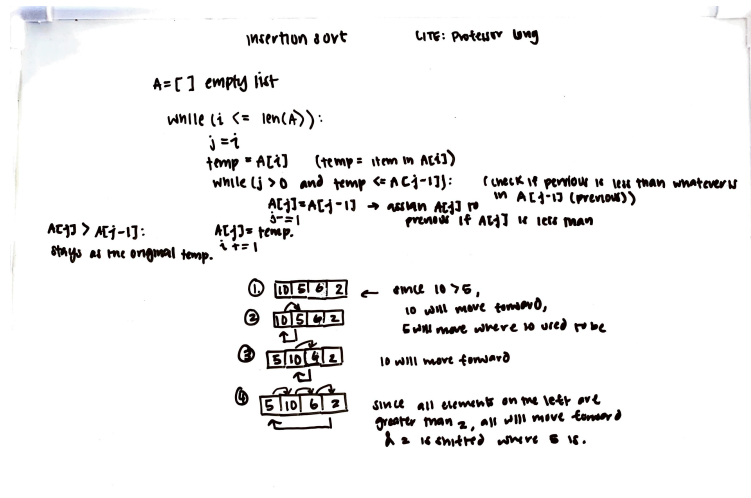 insertion sort CITE: Professor Long
A = [ ] empty list
while (i <= len(A)):
j = i
temp = A[i] (temp = item in A[i])
while (j > 0 and temp <= A[j-1]): (check if pervious is less than whatever is
in A[j-1] (previous))
A[j] = A[j-1] → assign A[j] to
previous if A[j] is less than
j -= 1
A[j] > A[j-1]: A[j] = temp.
stays as the original temp. i += 1
1. 10 5 6 2 ← since 10 > 5,
10 will move forward,
2 10 5 6 2 5 will move where 10 used to be
3 5 10 6 2 10 will move forward
4 5 10 6 2 since all elements on the left are
greater than 2, all will move forward
& 2 is shifted where 5 is.